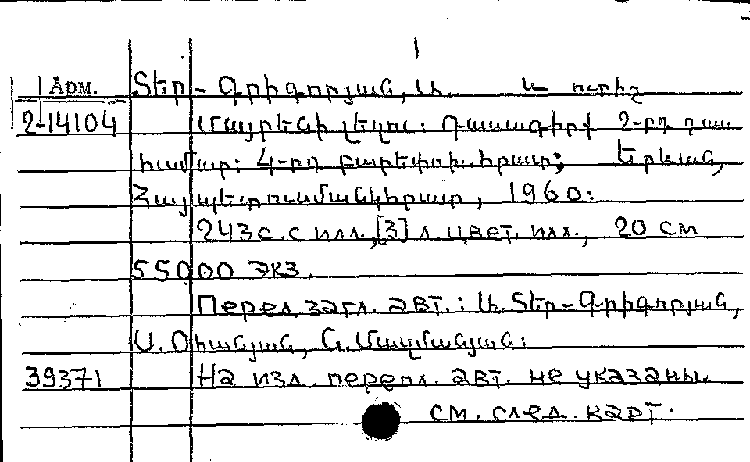 1
Арм. Տեր-Գրիգորյան, Ա. և ուրիշ
2-14104 Մայրենի լեզու: Դասագիրք 2-րդ դաս.
համար: 4-րդ բարեփոխ. հրատ; Երևան,
Հայպետուսմանկհրատ, 1960:
243 с. с илл., [3] л. цвет. илл., 20 см
55000 экз.
Перед загл. авт.: Ա. Տեր-Գրիգորյան,
Ս. Օհանյան,
39371 На изд. перепл. авт. не указаны.
см. след. карт.